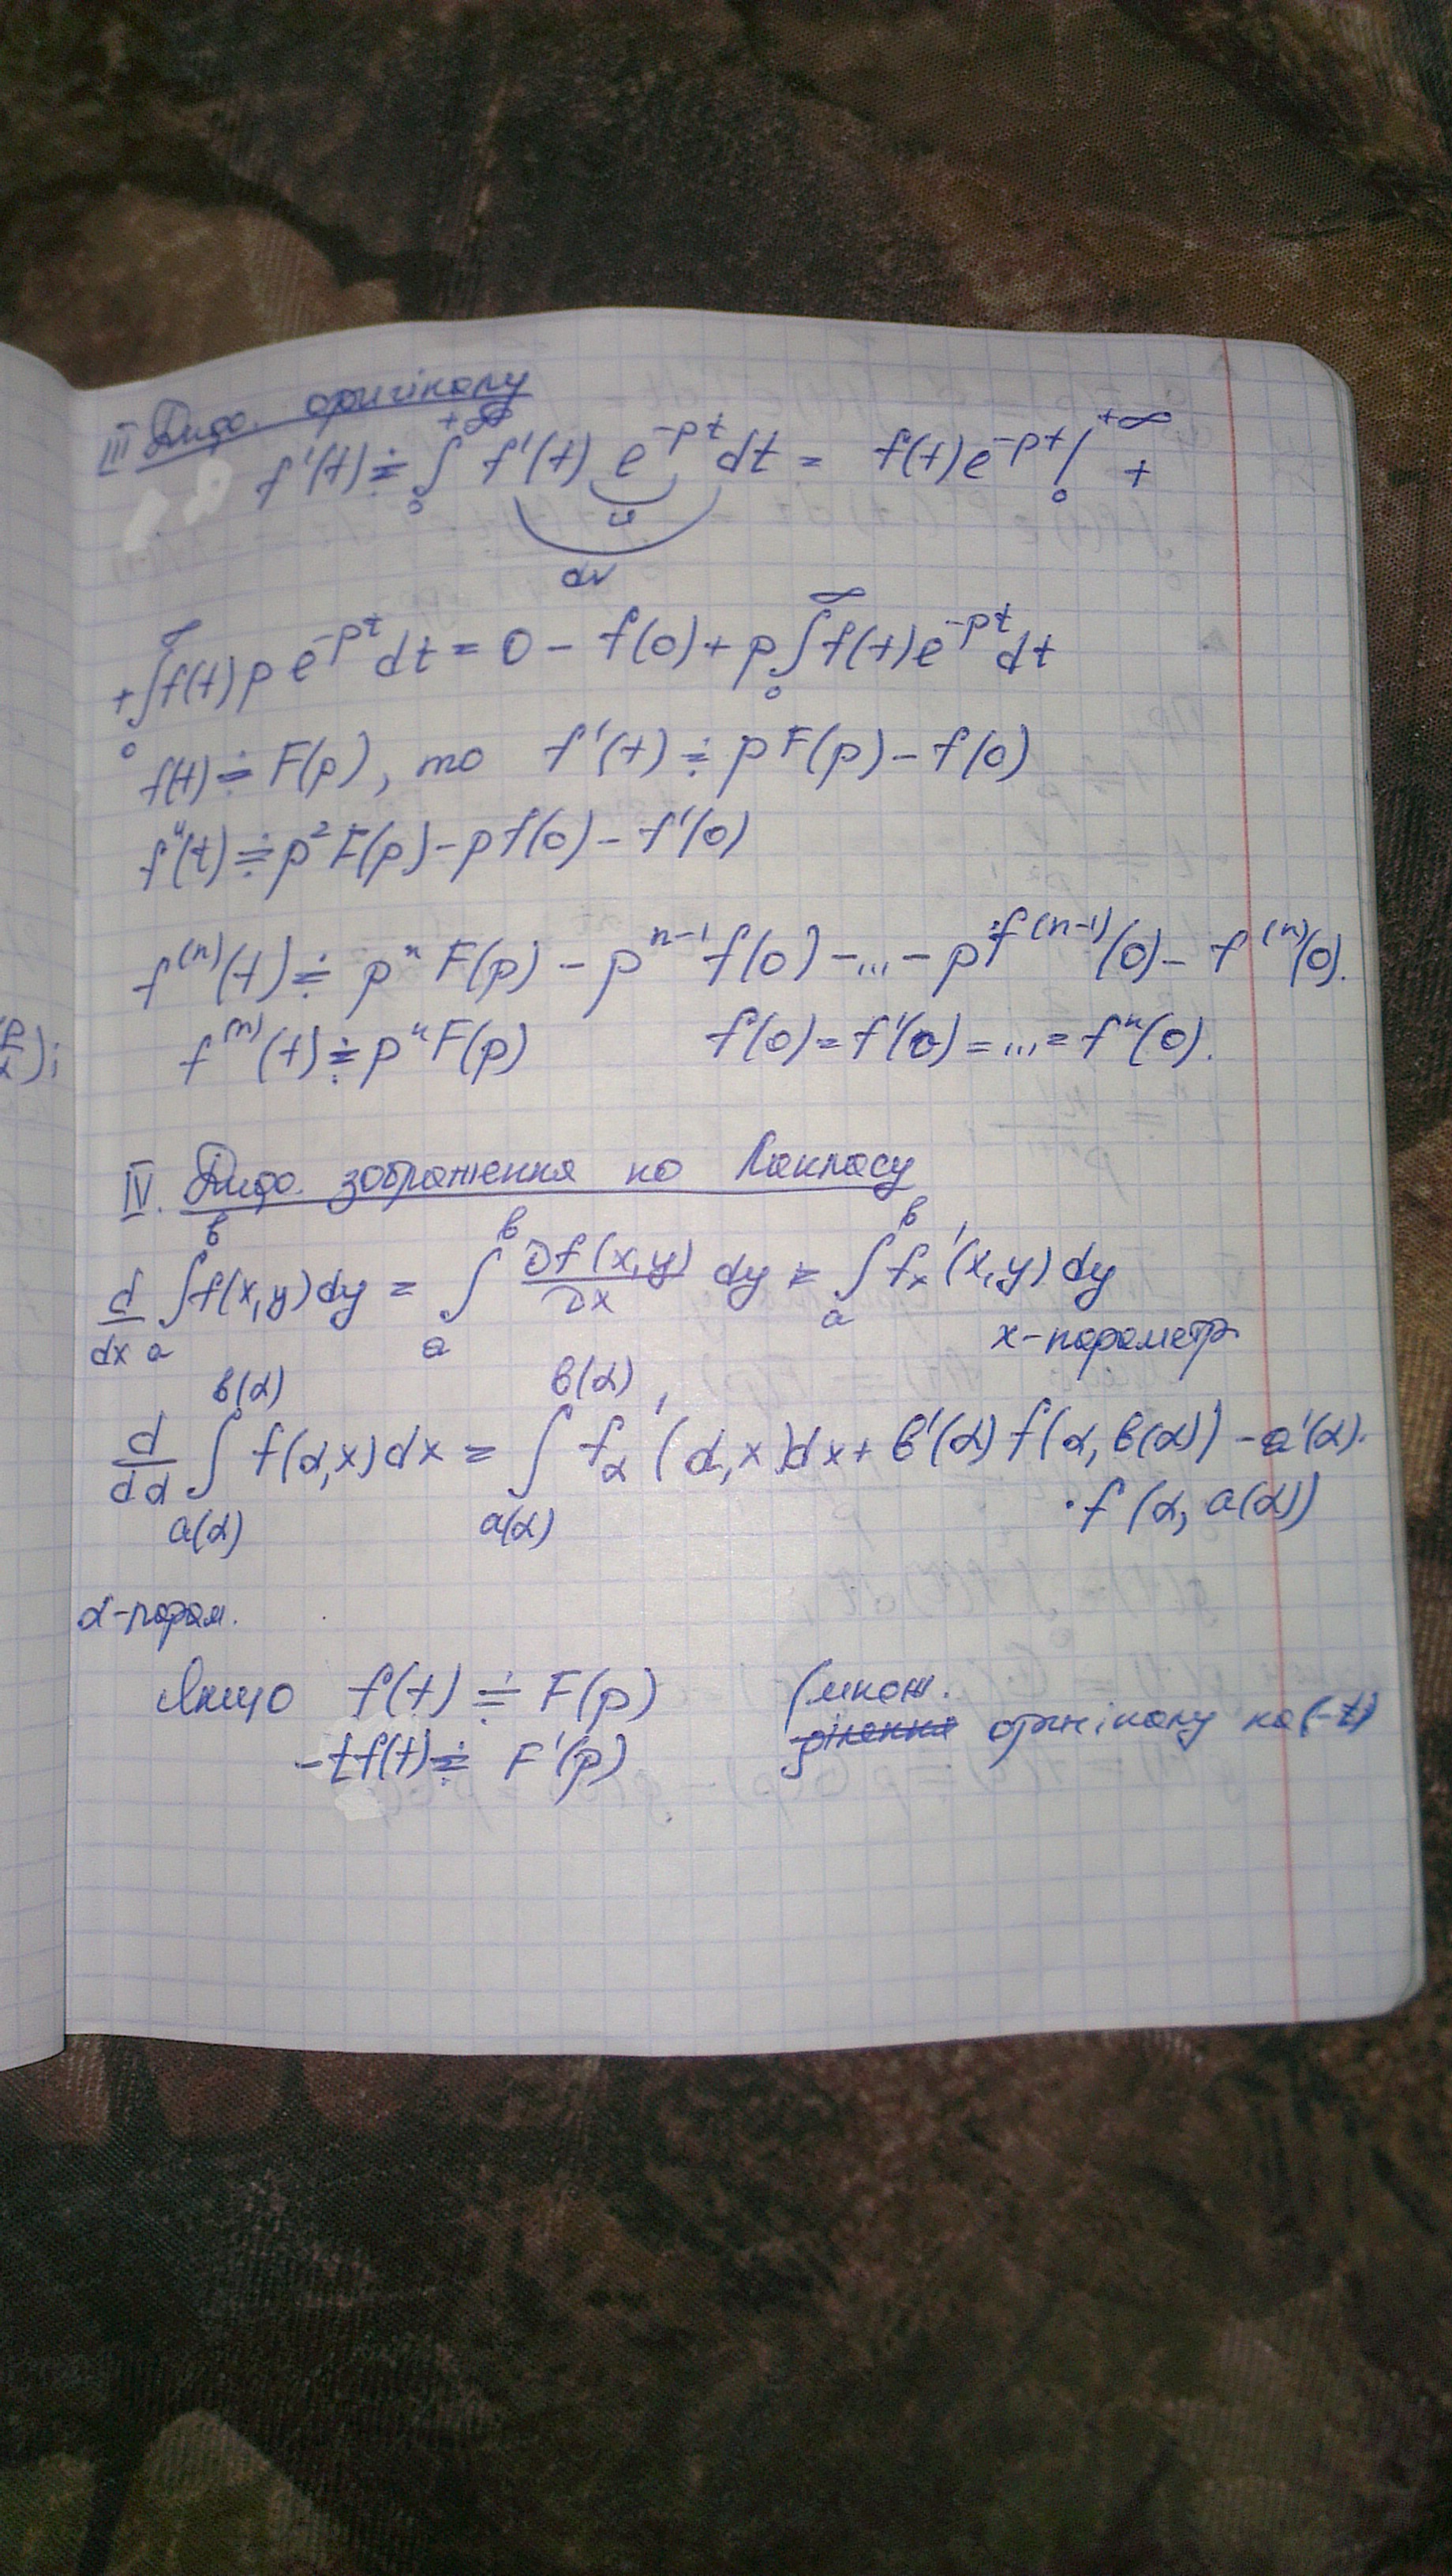 III Дифо. оригіналу
f'(t) ≑ ∫₀^{+∞} f'(t) e^{-pt} dt = f(t)e^{-pt} |₀^{+∞} +
u
dv
+∫₀^∞ f(t) p e^{-pt} dt = 0 - f(0) + p∫₀^∞ f(t) e^{-pt} dt
f(t) ≑ F(p), то f'(t) ≑ pF(p) - f(0)
f''(t) ≑ p²F(p) - pf(0) - f'(0)
f^{(n)}(t) ≑ p^n F(p) - p^{n-1} f(0) - ... - p f^{(n-1)}(0) - f^{(n)}(0).
f^{(n)}(t) ≑ p^n F(p) f(0) = f'(0) = ... = f^n(0).
IV. Дифо. зображення по Лапласу
d/dx ∫_a^b f(x,y)dy = ∫_a^b ∂f(x,y)/∂x dy = ∫_a^b f_x'(x,y)dy
x-параметр
d/dα ∫_{a(α)}^{b(α)} f(α,x)dx = ∫_{a(α)}^{b(α)} f_α'(α,x)dx + b'(α) f(α, b(α)) - a'(α)·
·f(α, a(α))
α-парам.
Якщо f(t) ≑ F(p) (множ.
-tf(t) ≑ F'(p) ділення оригіналу на (-t)